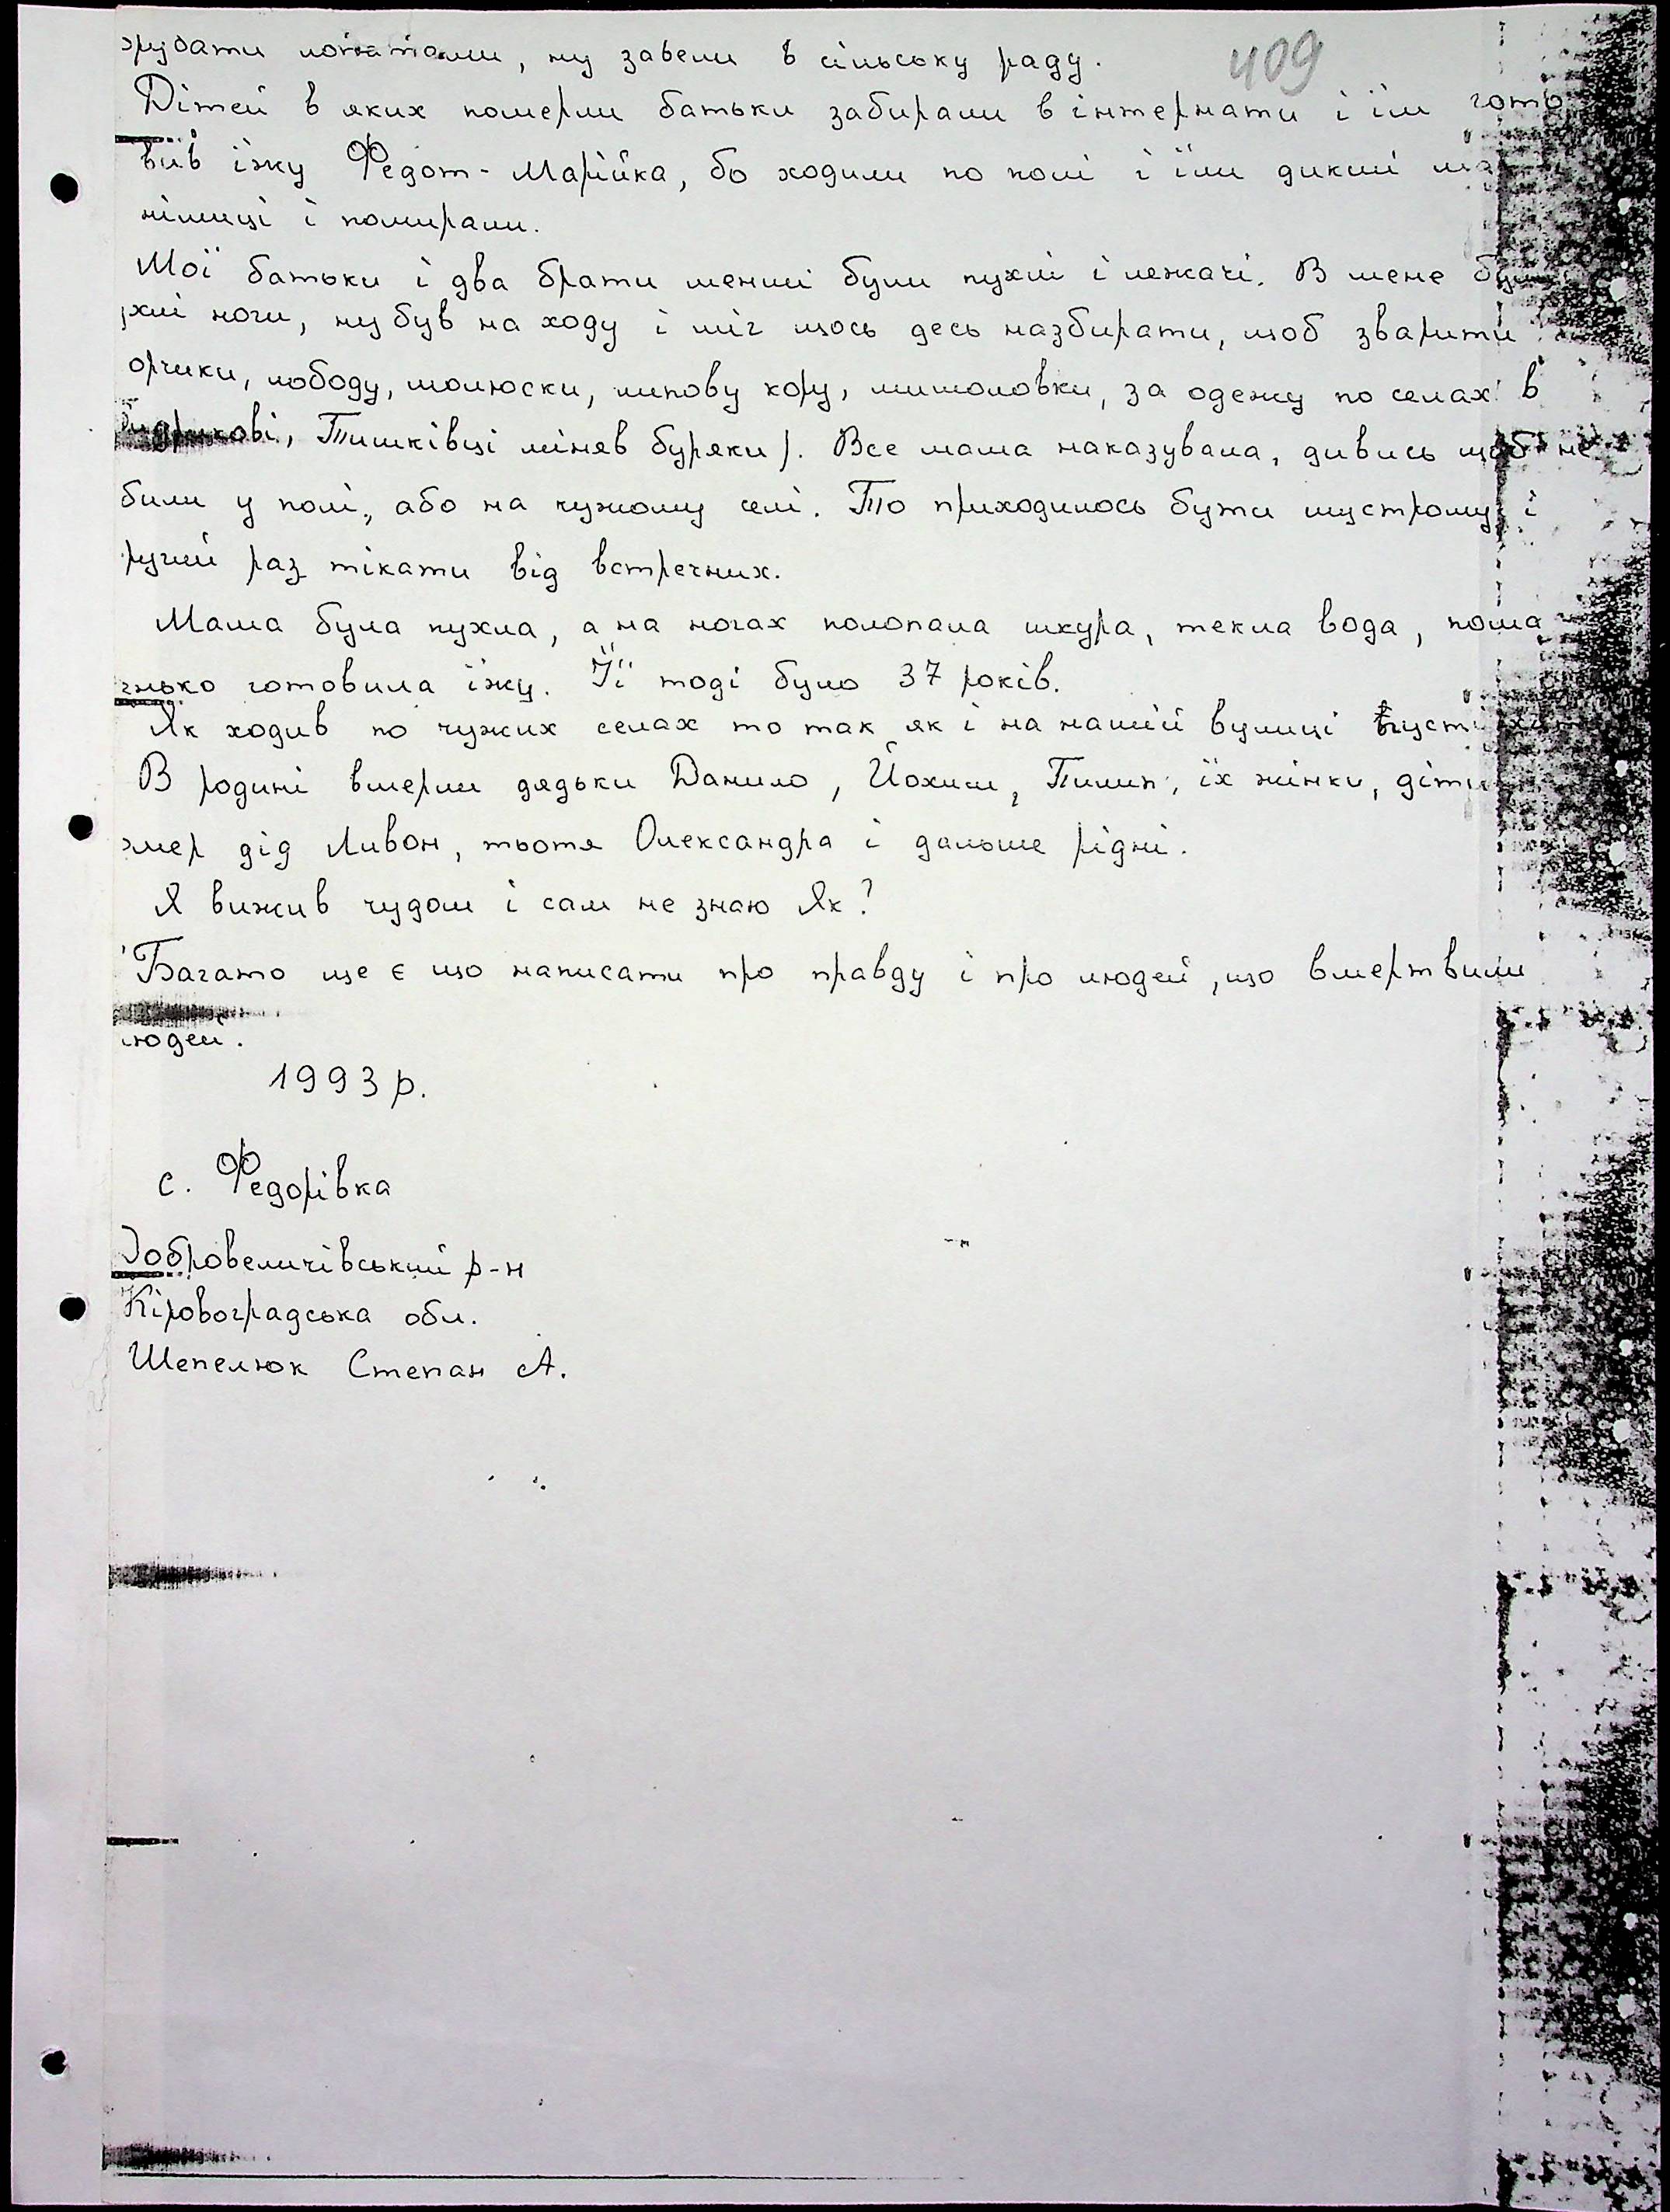 лопатами, ну завели в сільську раду.
409
Дітей в яких померли батьки забирали в інтернати і їм гото
вив їжу Федот-Марійка, бо ходили по полі і їли дикий
і помирали.
Мої батьки і два брати менші були пухлі і лежачі. В мене були
хлі ноги, ну був на ходу і міг щось десь назбирати, щоб зварити
орчики, лободу, молюски, липову кору, мишоловки, за одежу по селах в
Тишківці міняв буряки). Все мама наказувала, дивись щоб не
били у полі, або на чужому селі. То приходилось бути шустрому і
ругий раз тікати від встречних.
Мама була пухла, а на ногах полопала шкура, текла вода, пома
генько готовила їжу. Їй тоді було 37 років.
Як ходив по чужих селах то так як і на нашій вулиці пусті
В родині вмерли дядьки Данило, Йохим, Пилип, їх жінки, діти
мер дід Ливон, тьотя Олександра і дальше рідні.
Я вижив чудом і сам не знаю Як?
Багато ще є що написати про правду і про людей, що вмертвили
людей.
1993 р.
с. Федорівка
Добровеличівський р-н
Кіровоградська обл.
Шепелюк Степан А.